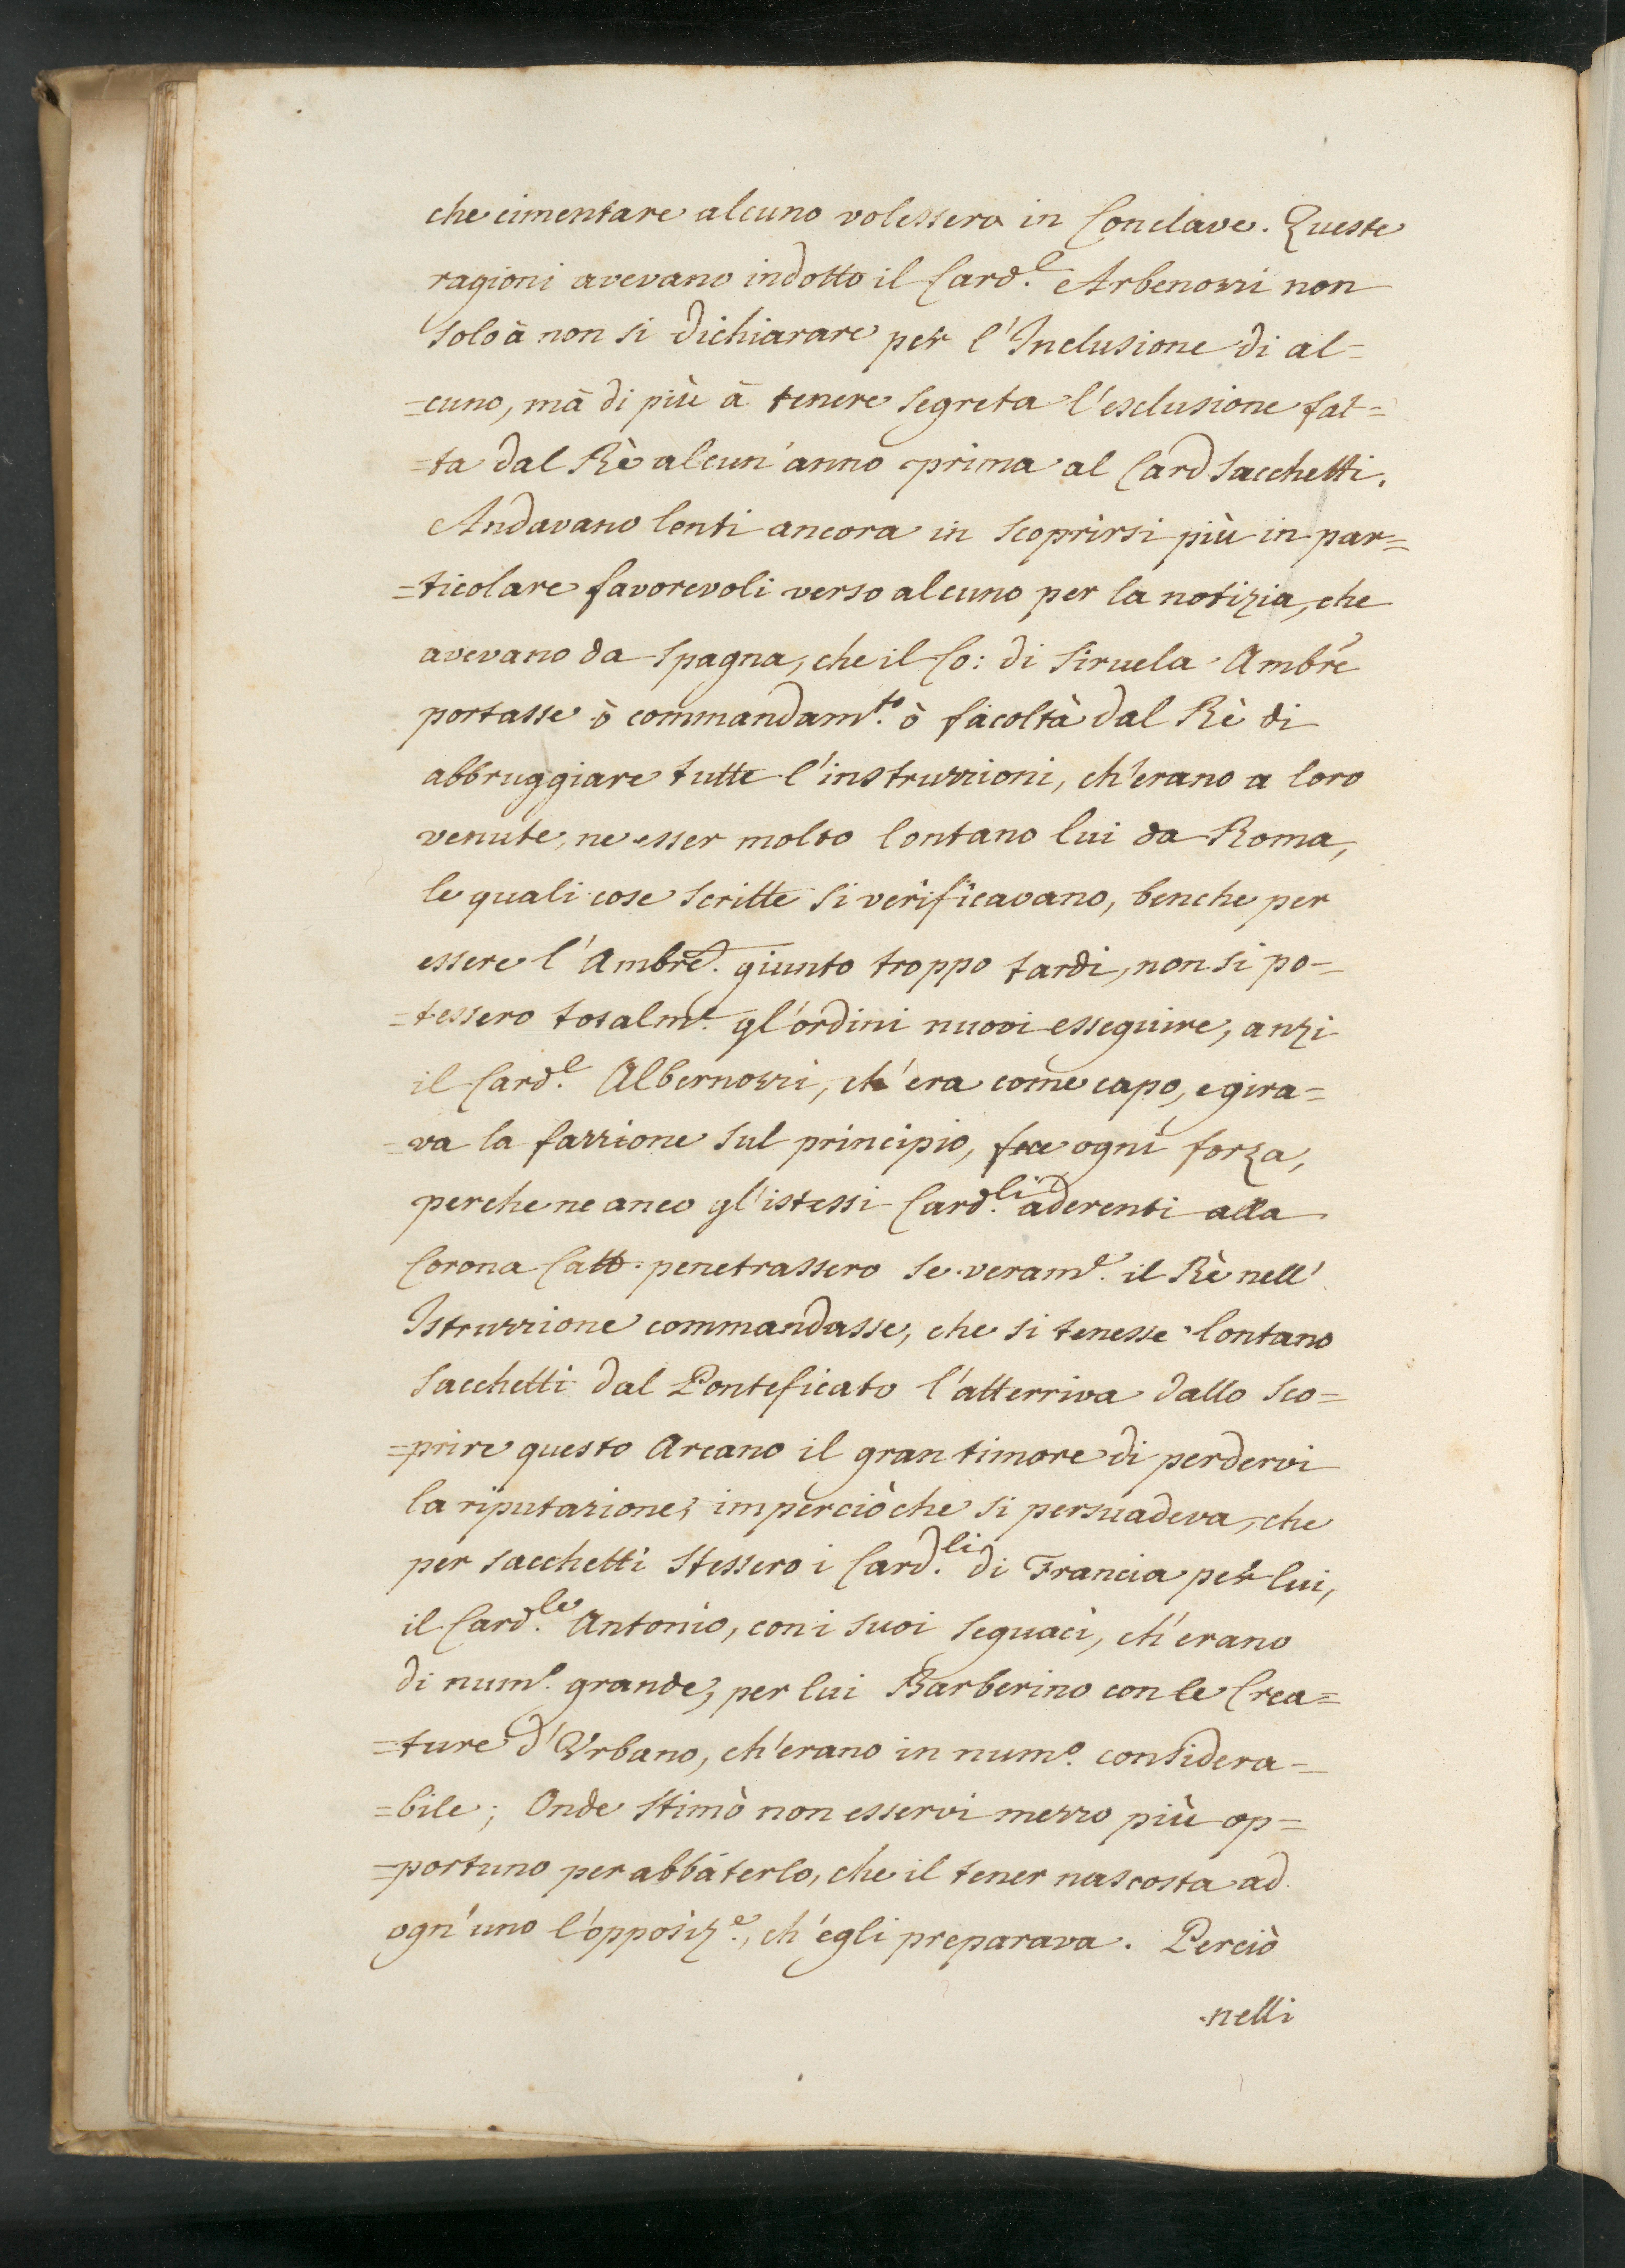 che cimentare alcuno volessero in Conclave. Queste
ragioni avevano indotto il Card.e Arbenozzi non
solo à non si dichiarare per l'Inclusione di al=
=cuno, mà di più à tenere segreta l'esclusione fat=
=ta dal Rè alcun'anno prima al Card Sacchetti.
Andavano lenti ancora in scoprirsi più in par=
=ticolare favorevoli verso alcuno per la notizia, che
avevano da Spagna, che il Co: di Siruela Ambre
portasse ò commandam.to ò facoltà dal Rè di
abbruggiare tutte l'instruzzioni, ch'erano a loro
venute, ne esser molto lontano lui da Roma,
le quali cose scritte si verificavano, benche per
essere l'Ambre. giunto troppo tardi, non si po=
=tessero totalm.e gl'ordini nuovi esseguire, anzi
il Card.e Albernozzi, ch'era come capo, e gira=
=va la fazzione sul principio, fece ogni forza,
perche ne anco gl'istessi Card.li aderenti alla
Corona Catt. penetrassero se veram.e il Rè nell'
Istruzzione commandasse, che si tenesse lontano
Sacchetti dal Ponteficato l'atterriva dallo sco=
=prire questo Arcano il gran timore di perdervi
la riputazione; imperciòche si persuadeva, che
per Sacchetti stessero i Card.li di Francia per lui,
il Card.le Antonio, con i suoi seguaci, ch'erano
di num.o grande, per lui Barberino con le Crea=
=ture d'Urbano, ch'erano in num.o considera=
=bile; Onde stimò non esservi mezzo più op=
=portuno per abbaterlo, che il tener nascosta ad
ogn'uno l'opposiz.e, ch'egli preparava. Perciò
nelli